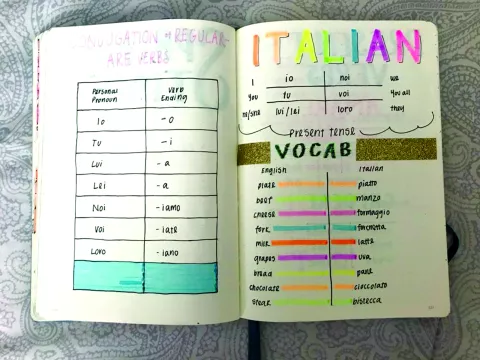 CONJUGATION of REGULAR
-ARE VERBS
Personal Pronoun Verb Ending
Io -o
Tu -i
Lui -a
Lei -a
Noi -iamo
Voi -iate
Loro -iano
ITALIAN
I io noi we
You tu voi You all
He/She lui/lei loro they
Present tense
VOCAB
English Italian
plate piatto
beef manzo
cheese formaggio
fork forchetta
milk latte
grapes uva
bread pane
chocolate cioccolato
steak bistecca